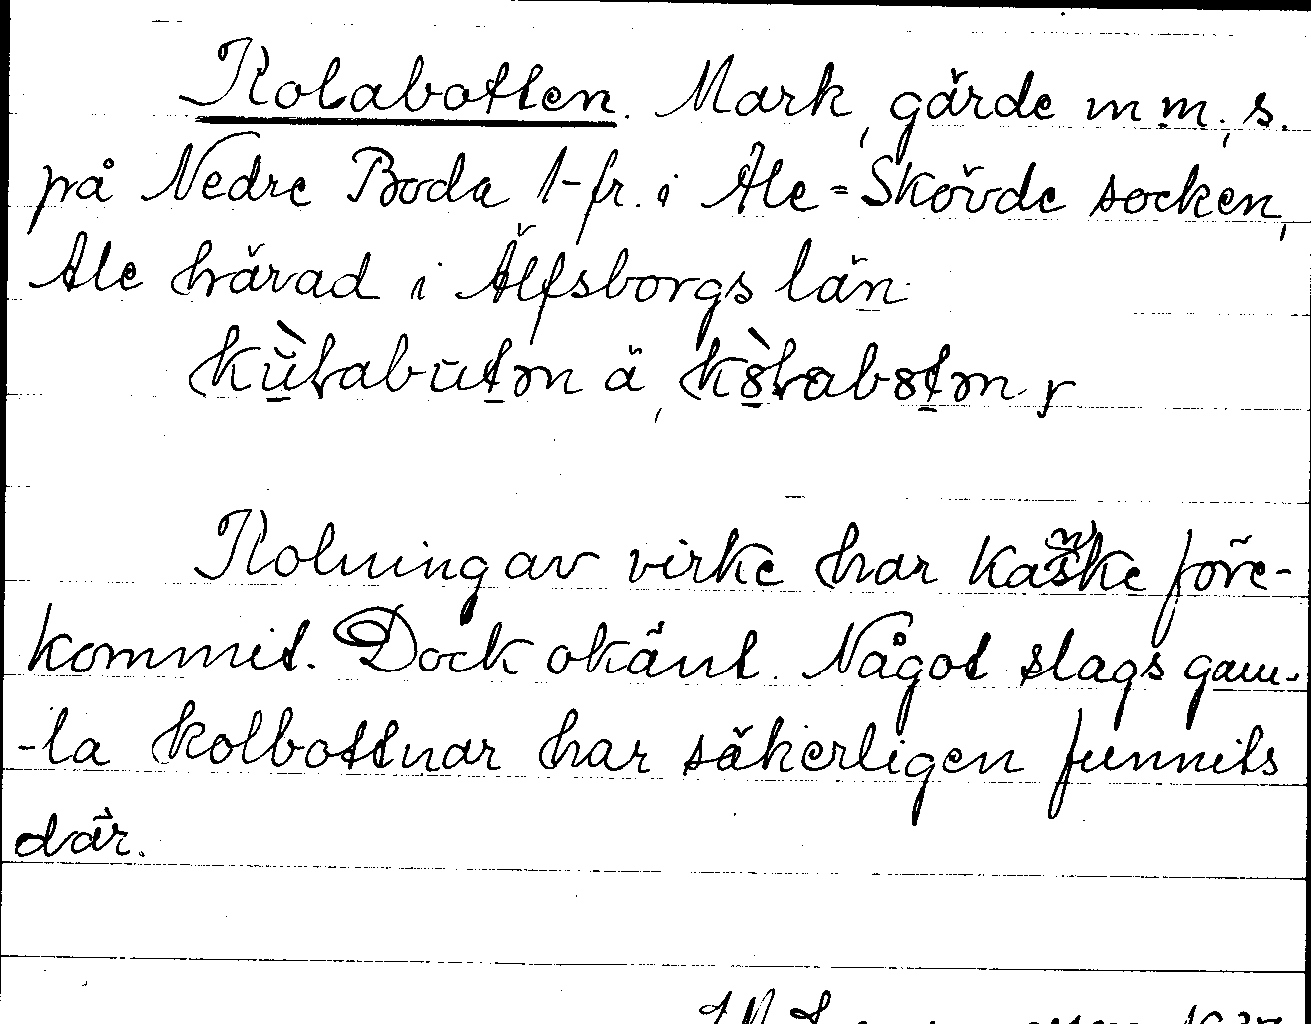 Kolabotten. Mark, gärde m.m., s.
på Nedre Boda 1-fr. i Ale-Skövde socken,
Ale härad i Älfsborgs län
Kolning av virke har kanske före-
kommit. Dock okänt. Något slags gam-
-la kolbottnar har säkerligen funnits
där.